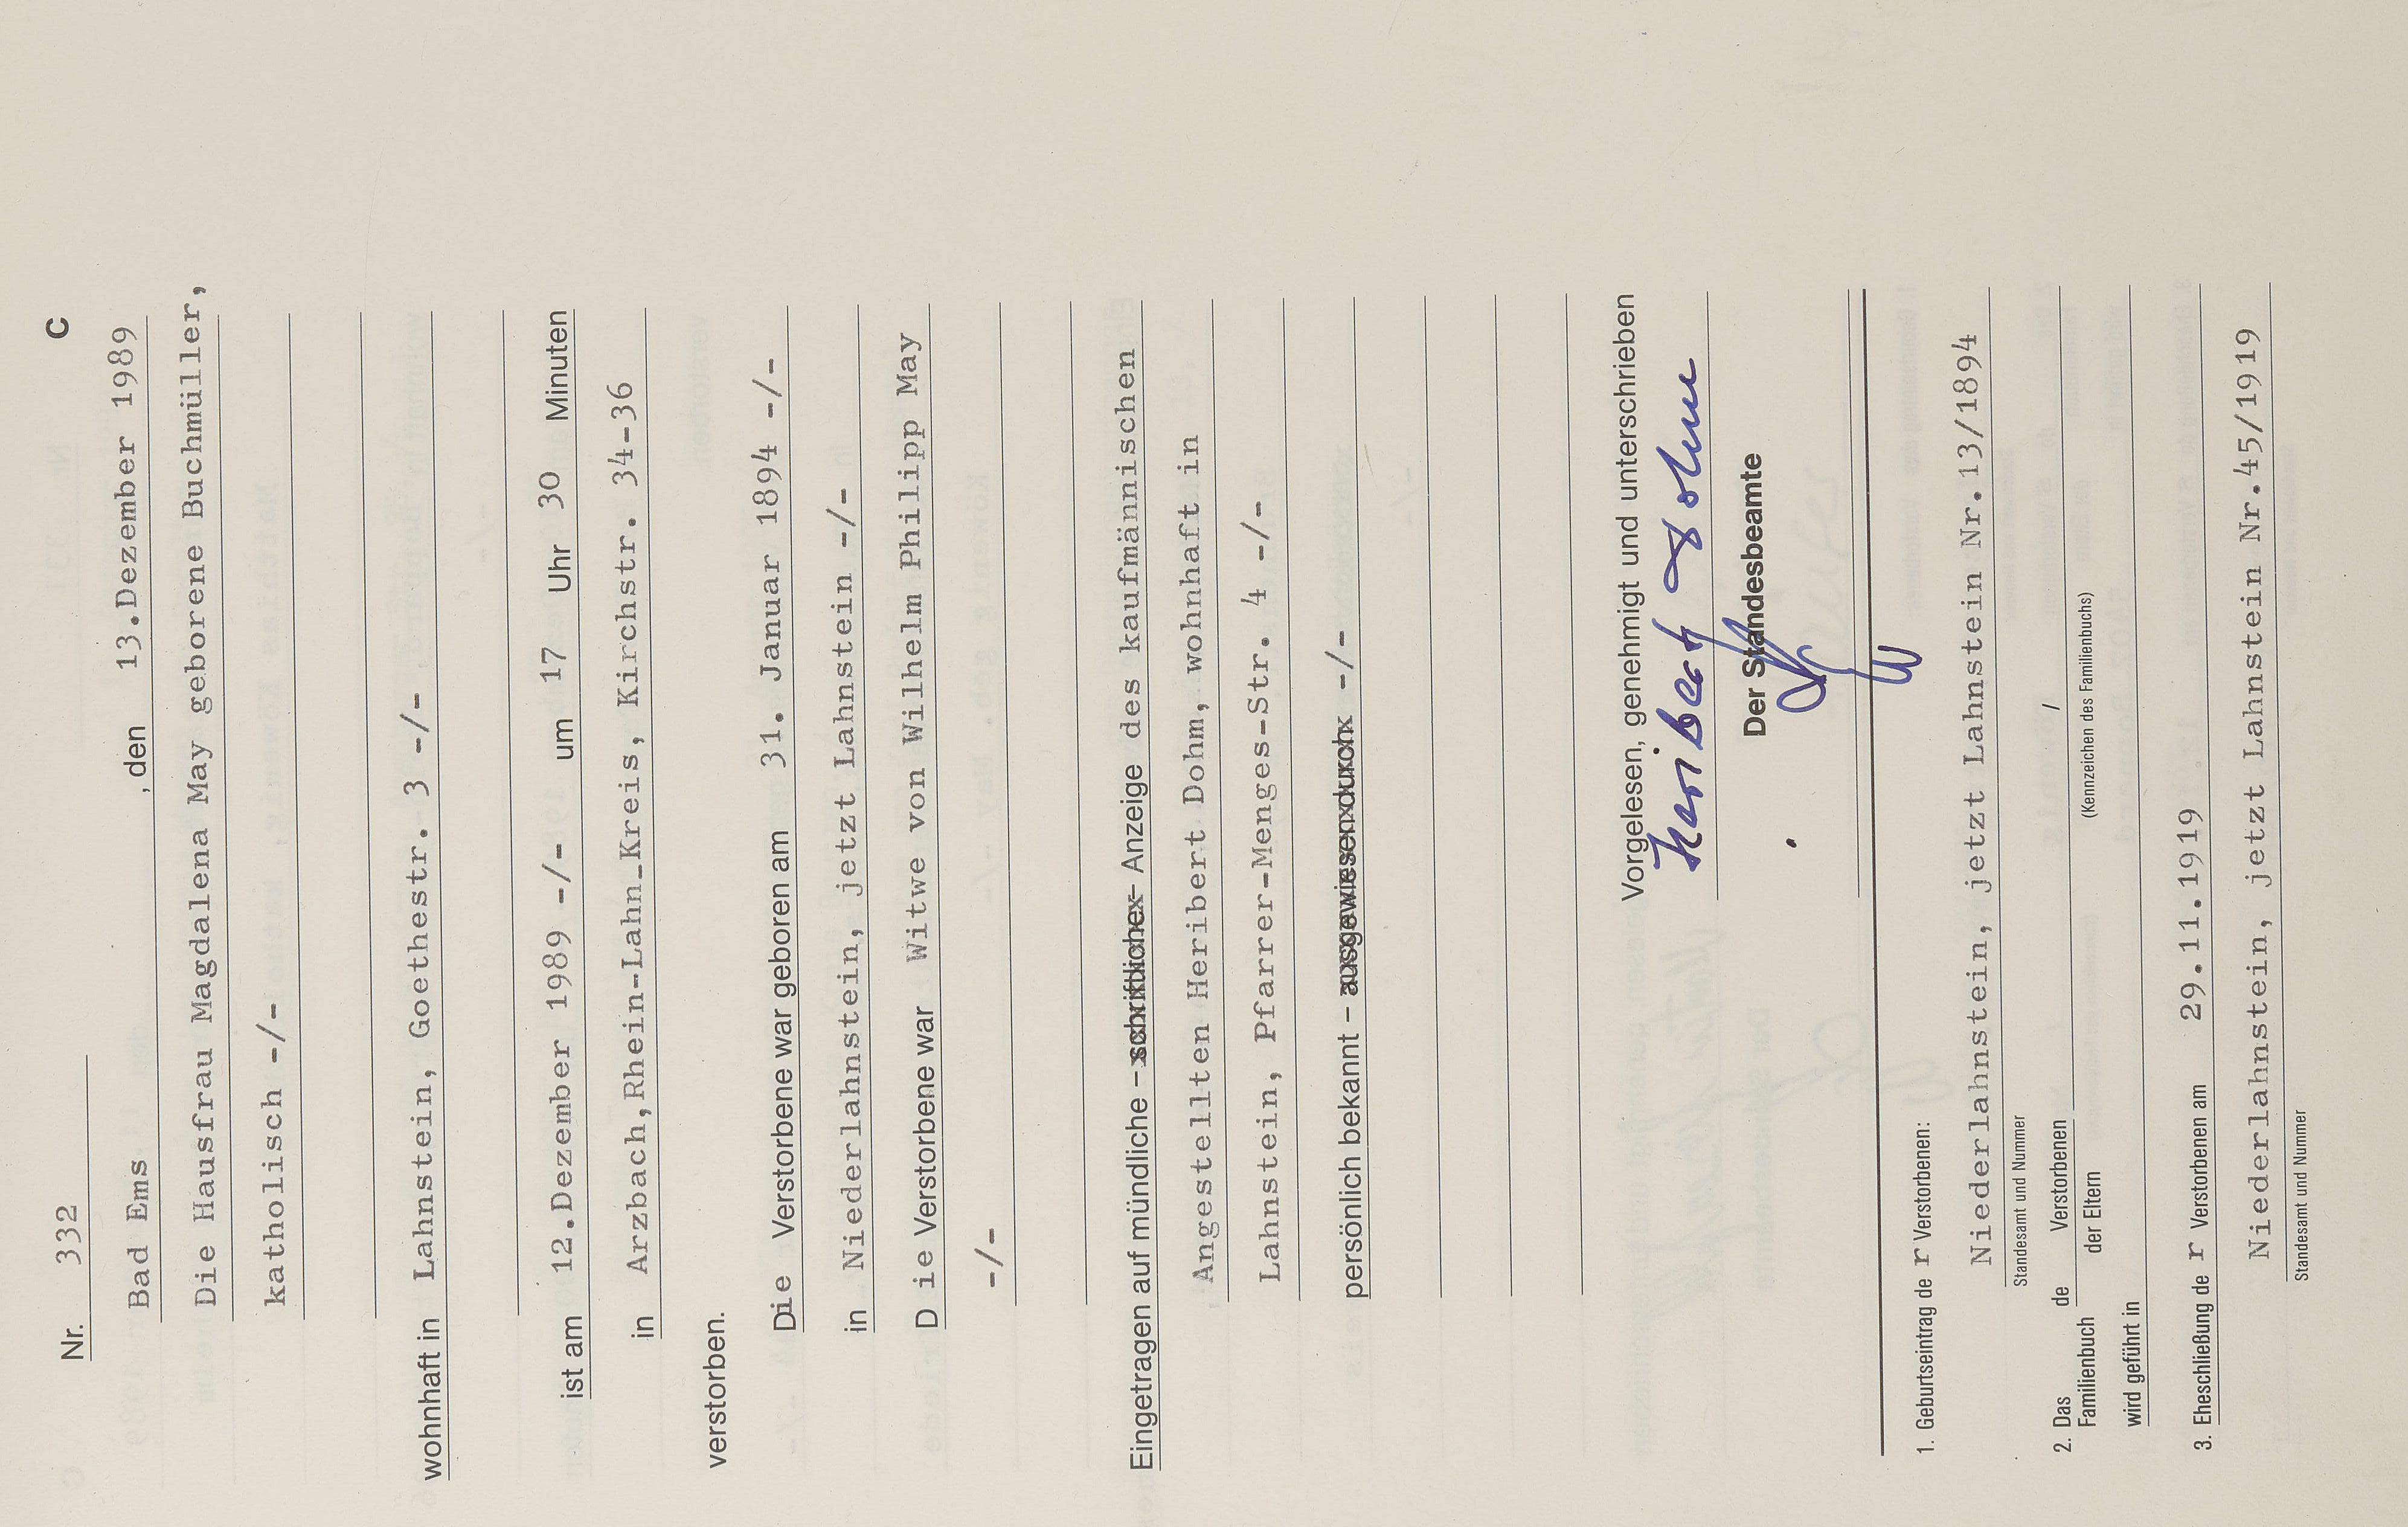 C
Nr. 332
Bad Ems , den 13.Dezember 1989
Die Hausfrau Magdalena May geborene Buchmüller,
katholisch -/-
wohnhaft in Lahnstein, Goethestr. 3 -/-
ist am 12.Dezember 1989 -/- um 17 Uhr 30 Minuten
in Arzbach,Rhein-Lahn_Kreis, Kirchstr. 34-36
verstorben.
Die Verstorbene war geboren am 31. Januar 1894 -/-
in Niederlahnstein, jetzt Lahnstein -/-
D ie Verstorbene war Witwe von Wilhelm Philipp May
-/-
Eingetragen auf mündliche – schriftliche – Anzeige des kaufmännischen
Angestellten Heribert Dohm, wohnhaft in
Lahnstein, Pfarrer-Menges-Str. 4 -/-
persönlich bekannt – ausgewiesen durch -/-
Vorgelesen, genehmigt und unterschrieben
Heribert Dohm
Der Standesbeamte
1. Geburtseintrag de r Verstorbenen:
Niederlahnstein, jetzt Lahnstein Nr.13/1894
Standesamt und Nummer
2. Das Familienbuch de Verstorbenen der Eltern /
(Kennzeichen des Familienbuchs)
wird geführt in
3. Eheschließung de r Verstorbenen am 29.11.1919
Niederlahnstein, jetzt Lahnstein Nr.45/1919
Standesamt und Nummer